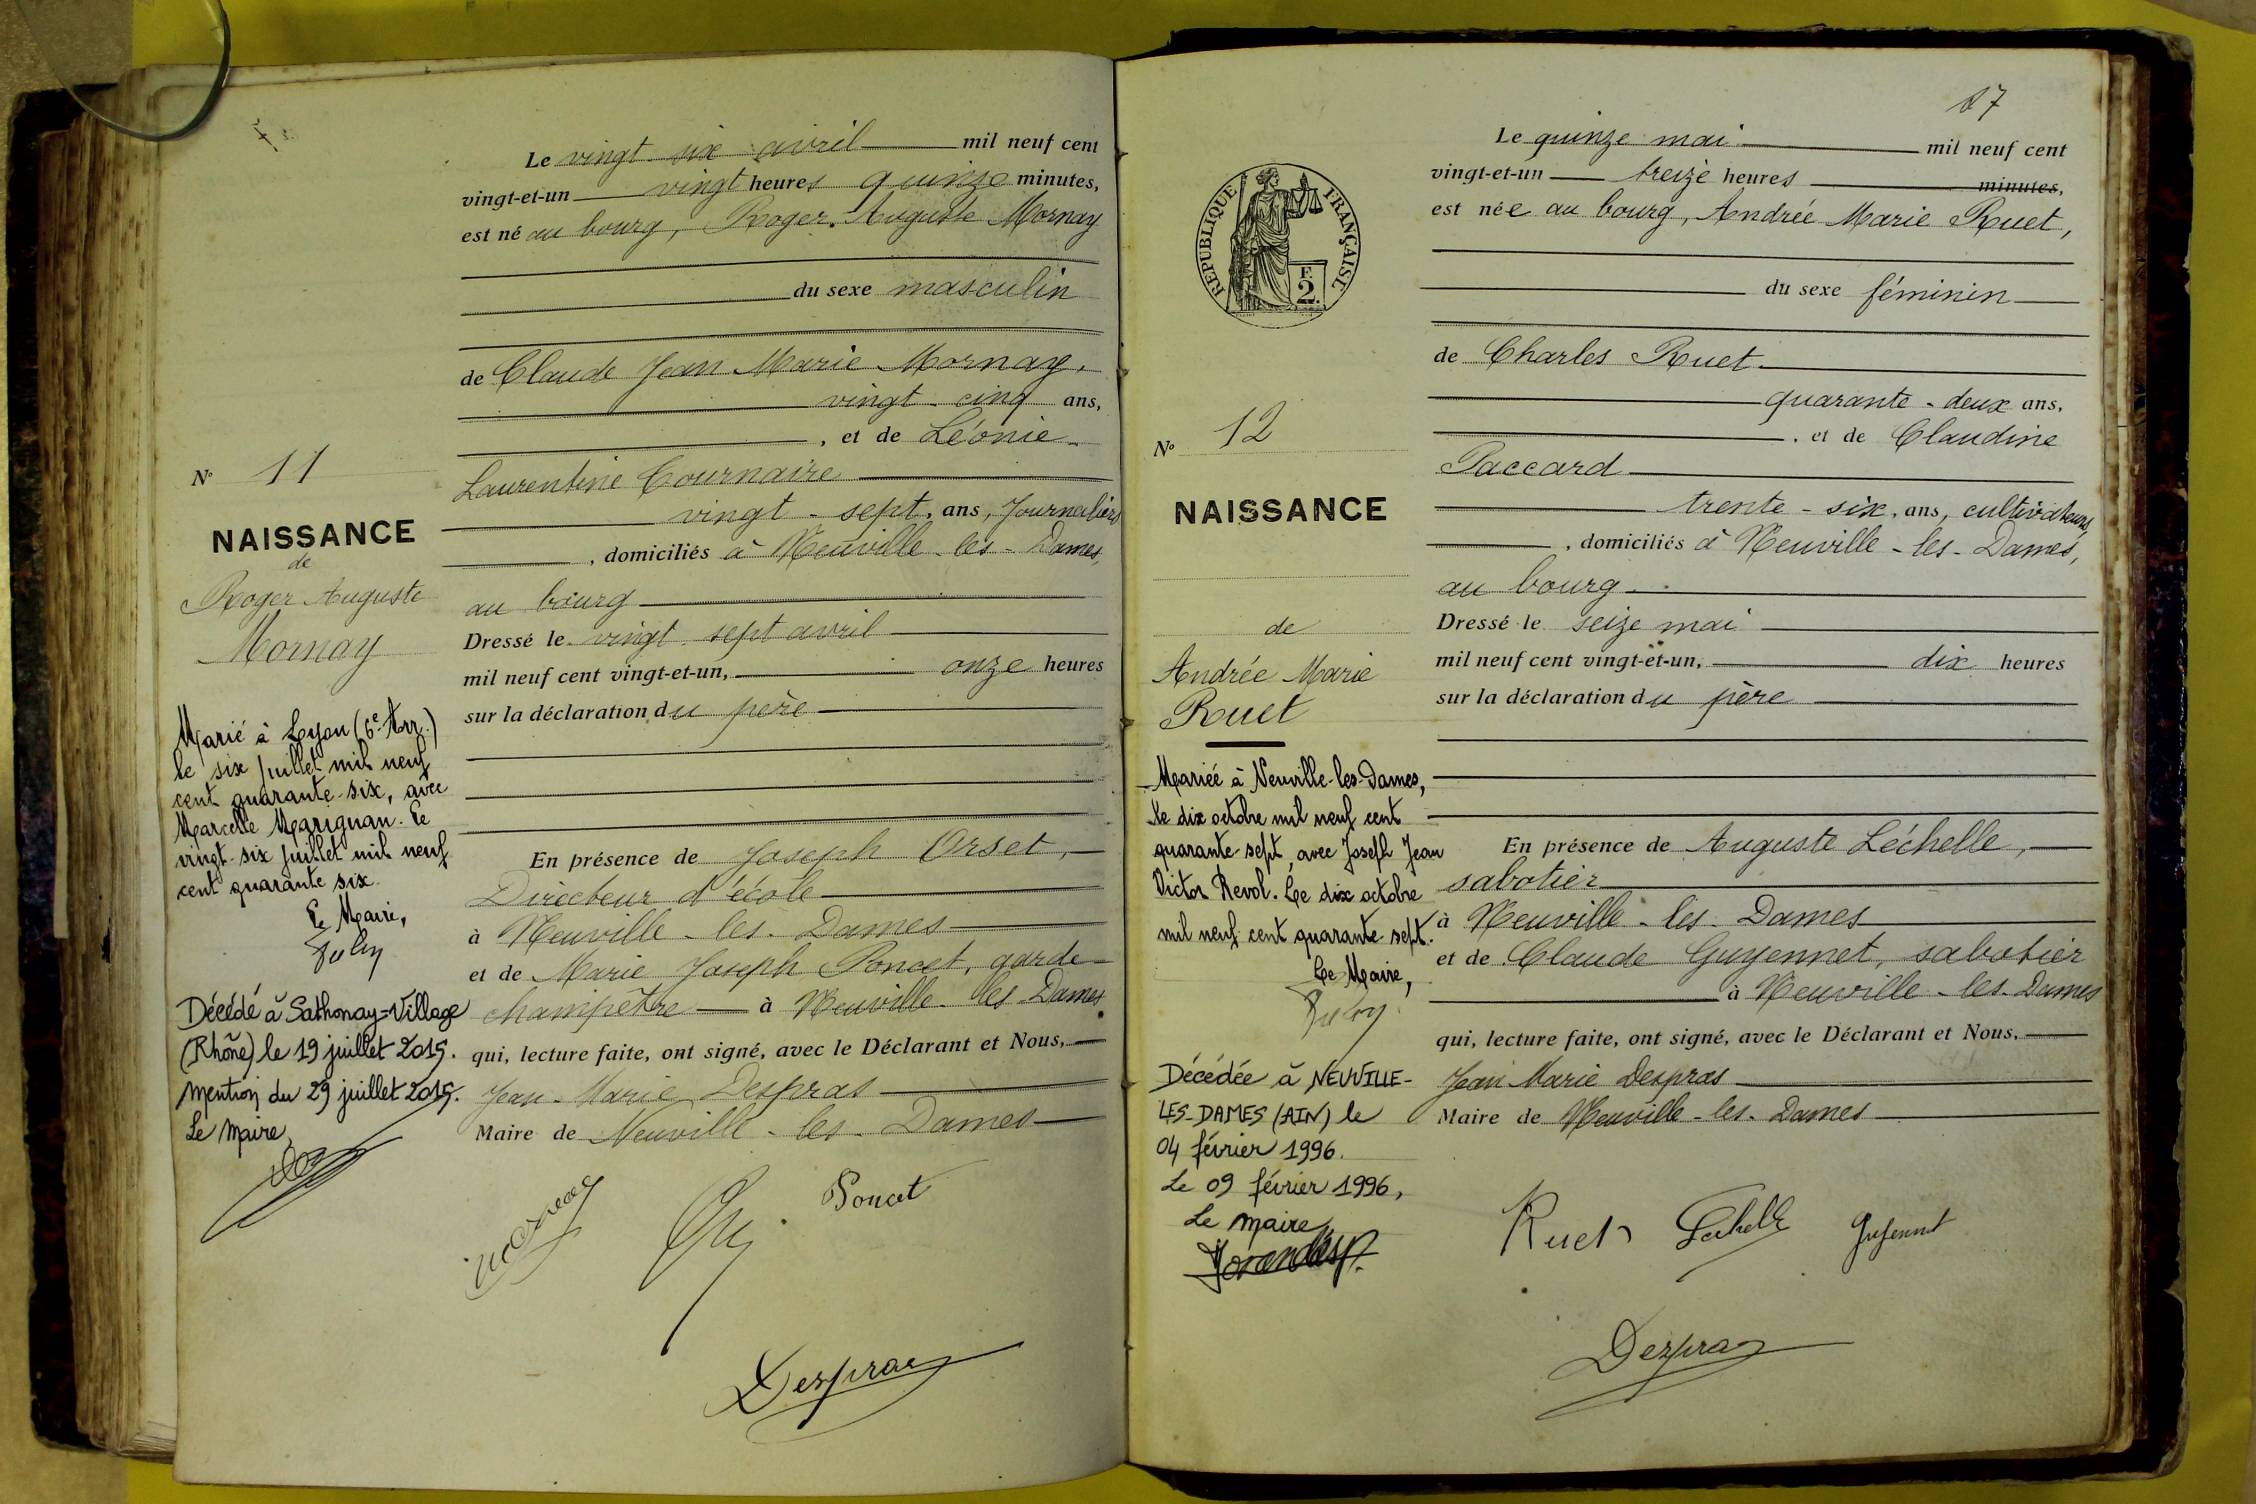 Le vingt six avril mil neuf cent
vingt-et-un vingt heures quinze minutes,
est né au bourg, Roger Auguste Mornay
du sexe masculin
de Claude Jean Marie Mornay,
vingt-cinq ans,
, et de Léonie
Laurentine Tournaire
vingt-sept, ans, Journaliers
, domiciliés à Neuville-les-Dames,
au bourg
Dressé le vingt sept avril
mil neuf cent vingt-et-un, onze heures
sur la déclaration du père
En présence de Joseph Orset,
Directeur d'école
à Neuville-les-Dames
et de Marie Joseph Poncet, garde
champêtre à Neuville-les-Dames
qui, lecture faite, ont signé, avec le Déclarant et Nous,
Jean-Marie Despras
Maire de Neuville-les-Dames
Mornay
Poncet
Despras
No 11
NAISSANCE
de
Roger Auguste
Mornay
Marié à Lyon (6e Arr.)
le six juillet mil neuf
cent quarante-six, avec
Marcelle Marignan. Le
vingt-six juillet mil neuf
cent quarante six.
Le Maire,
Décédé à Sathonay=Village
(Rhône) le 19 juillet 2015.
Mention du 29 juillet 2015.
Le Maire,
17
Le quinze mai mil neuf cent
vingt-et-un treize heures minutes,
est née au bourg, Andrée Marie Ruet,
du sexe féminin
de Charles Ruet
quarante-deux ans,
, et de Claudine
Paccard
trente-six, ans, cultivateurs
, domiciliés à Neuville-les-Dames,
au bourg.
Dressé le seize mai
mil neuf cent vingt-et-un, dix heures
sur la déclaration du père
En présence de Auguste Léchelle,
sabotier
à Neuville-les-Dames
et de Claude Guyennet, sabotier
à Neuville-les-Dames
qui, lecture faite, ont signé, avec le Déclarant et Nous,
Jean Marie Despras
Maire de Neuville-les-Dames
Ruet Léchelle Guyennet
Despras
REPUBLIQUE FRANÇAISE
F.
2.
No 12
NAISSANCE
de
Andrée Marie
Ruet
Mariée à Neuville-les-Dames,
le dix octobre mil neuf cent
quarante-sept, avec Joseph Jean
Victor Revol. Le dix octobre
mil neuf cent quarante-sept.
Le Maire,
Décédée à NEUVILLE-
LES-DAMES (AIN) le
04 février 1996.
Le 09 février 1996,
Le Maire